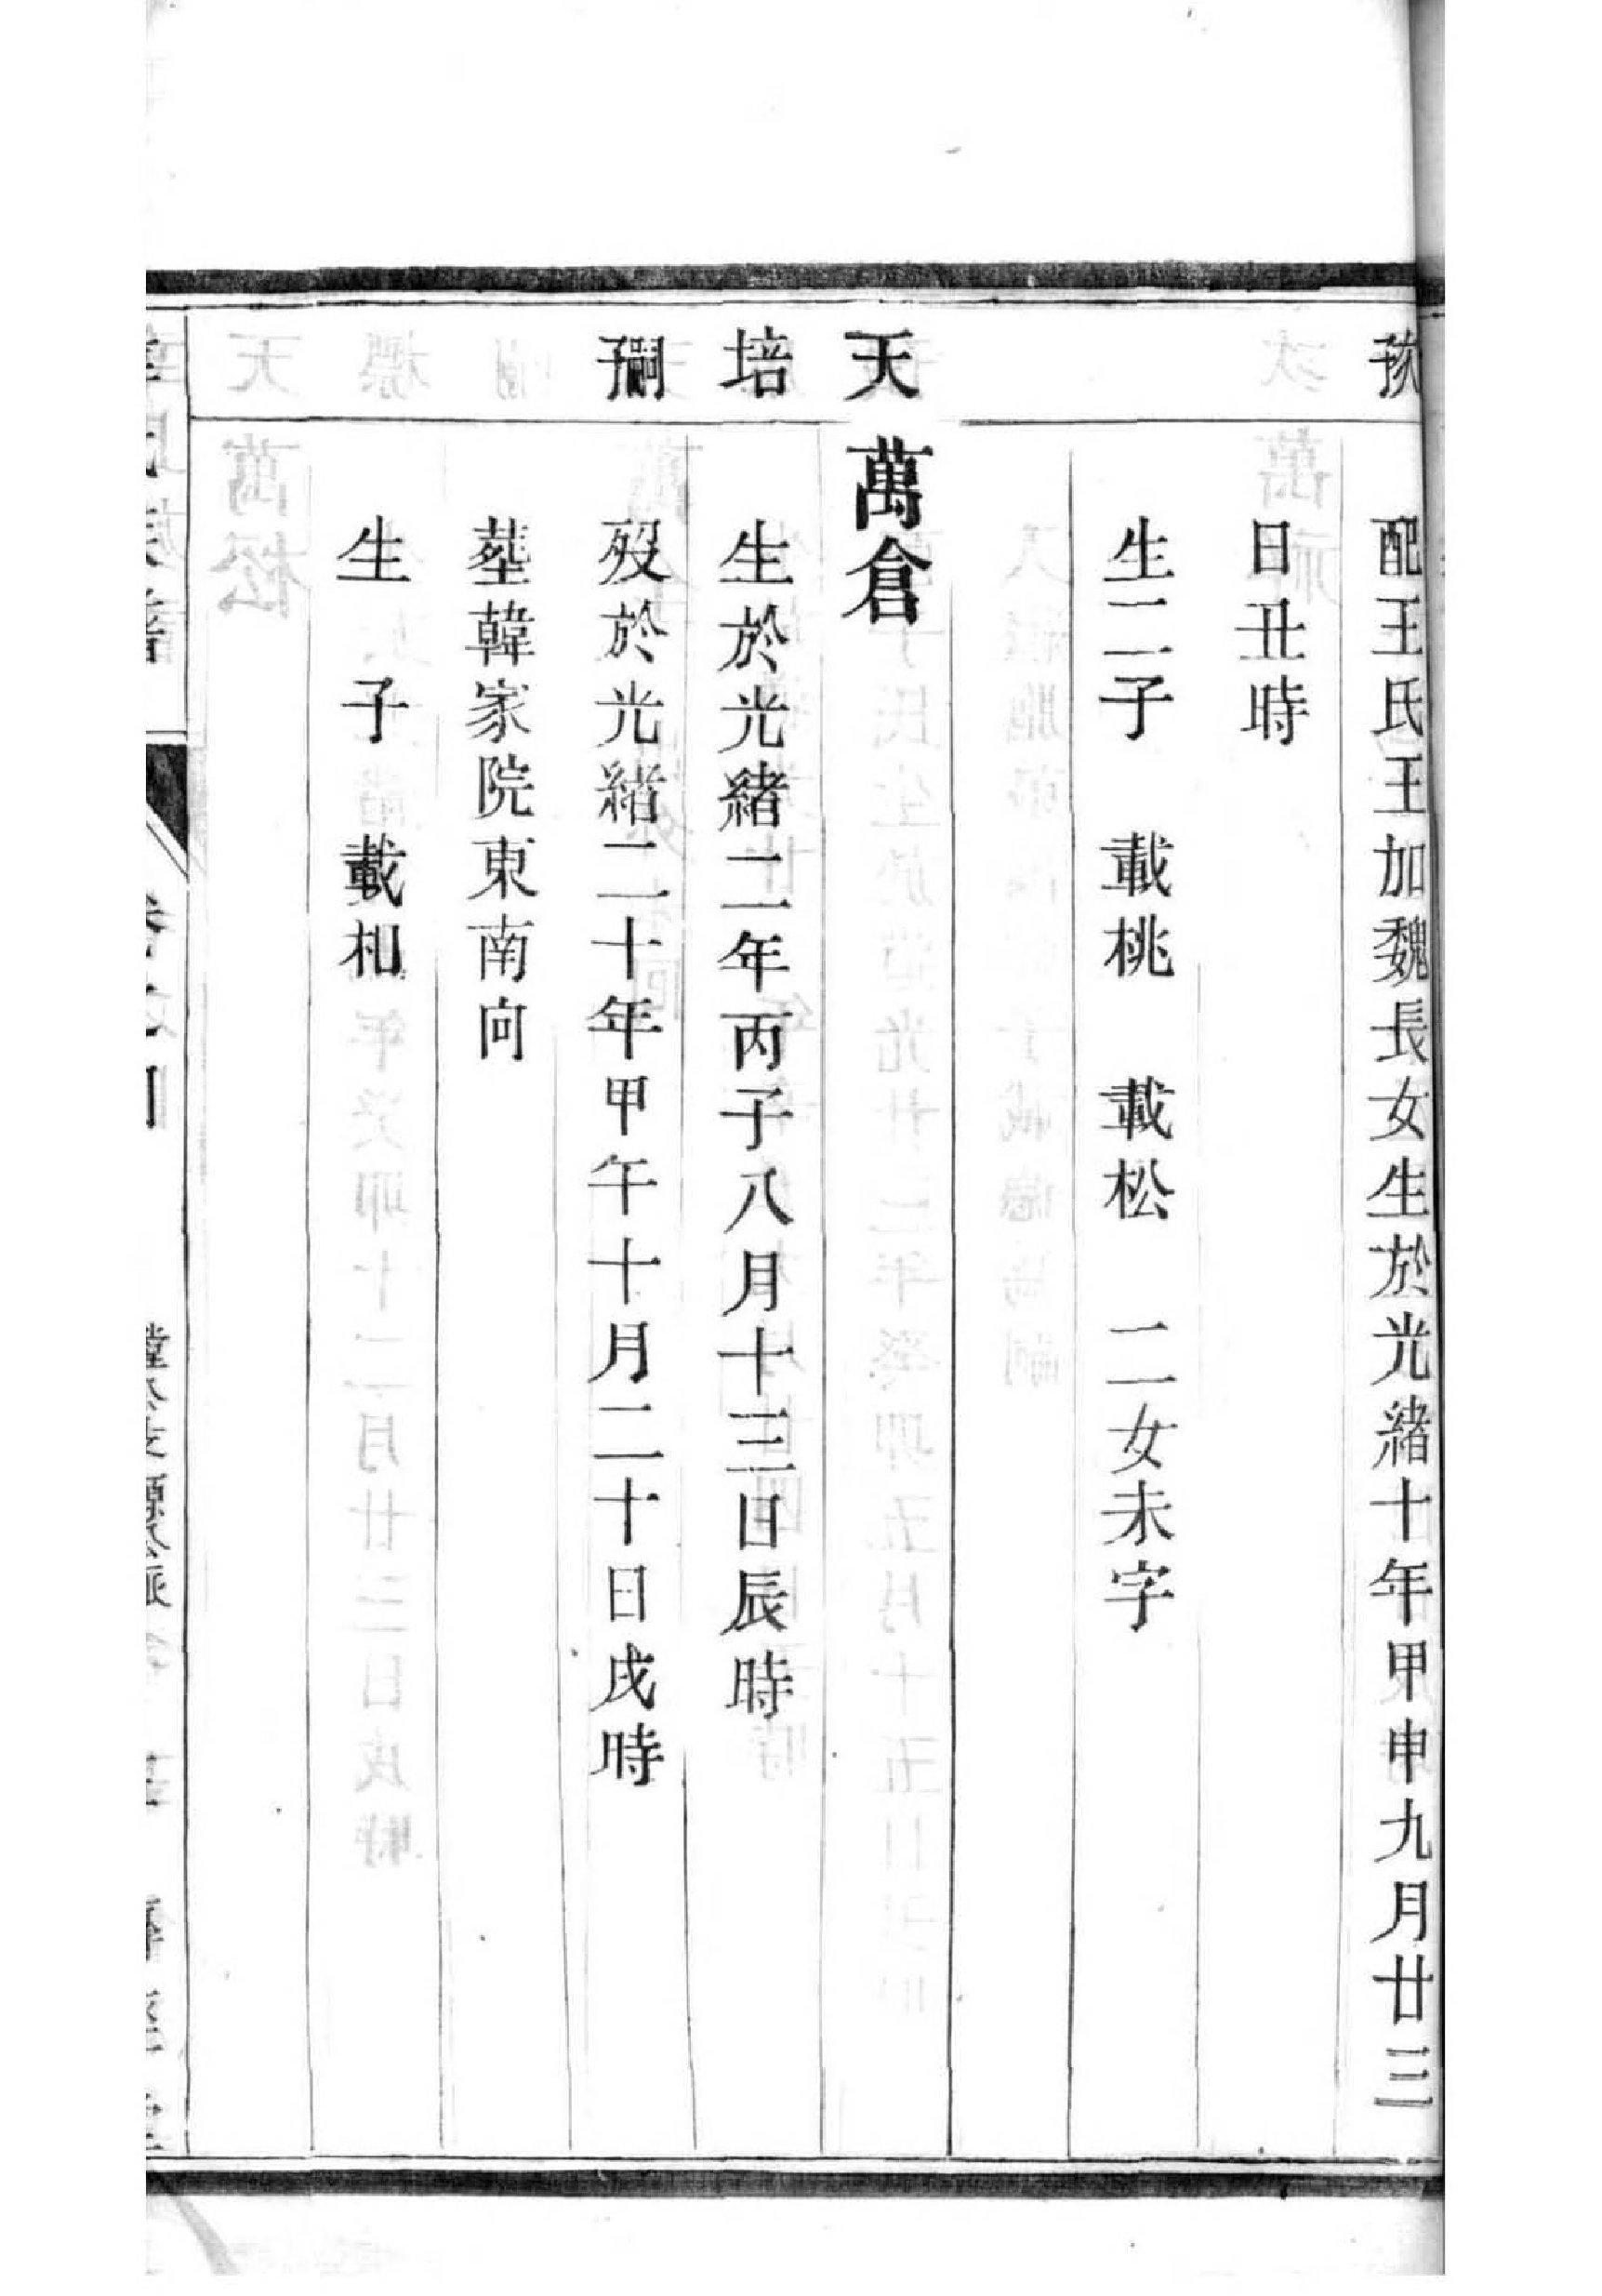 配王氏王加魏長女生於光緒十年甲申九月廿三
日丑時
生二子　載桃　載松　二女未字
天　萬倉
培　生於光緒二年丙子八月十三日辰時
歿於光緒二十年甲午十月二十日戌時
塟韓家院東南向
生　子　載相